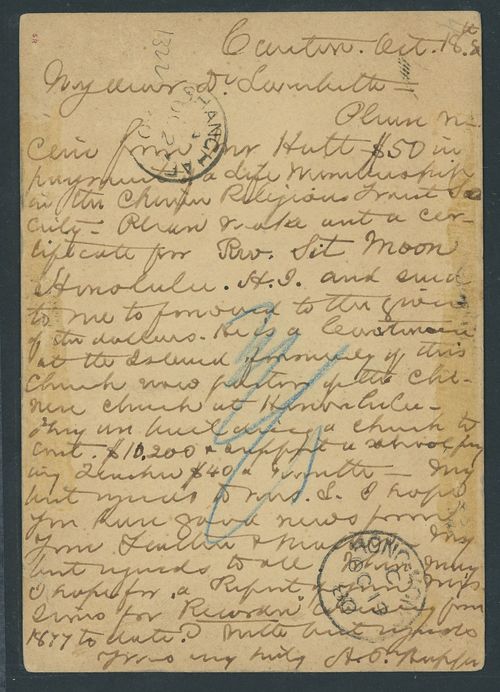 Canton. Oct. 18th
My dear Dr Lambuth—
Please re-
ceive from Mr Hutt $50 in
payment a life Membership
in the Chinese Religious Tract So
ciety— Please make out a cer-
tificate for Rev. Sit Moon
Honolulu. H.I. and send
to me to forward to the giver
of the dollars. He is a
at the Island formerly of this
Church now pastor of the Chi-
nese Church at Honolulu—
They are building a church to
cost $10,200 & support a school pay
ing Teacher $40 a month— My
best regards to Mrs. L. I hope
you have good news from
your &
best regards to all May
I hope for a Report
for Record from
1877 to date? With best regards
Yours very truly A. P. Happer
SHANGHAI
HONG KONG
OC 19